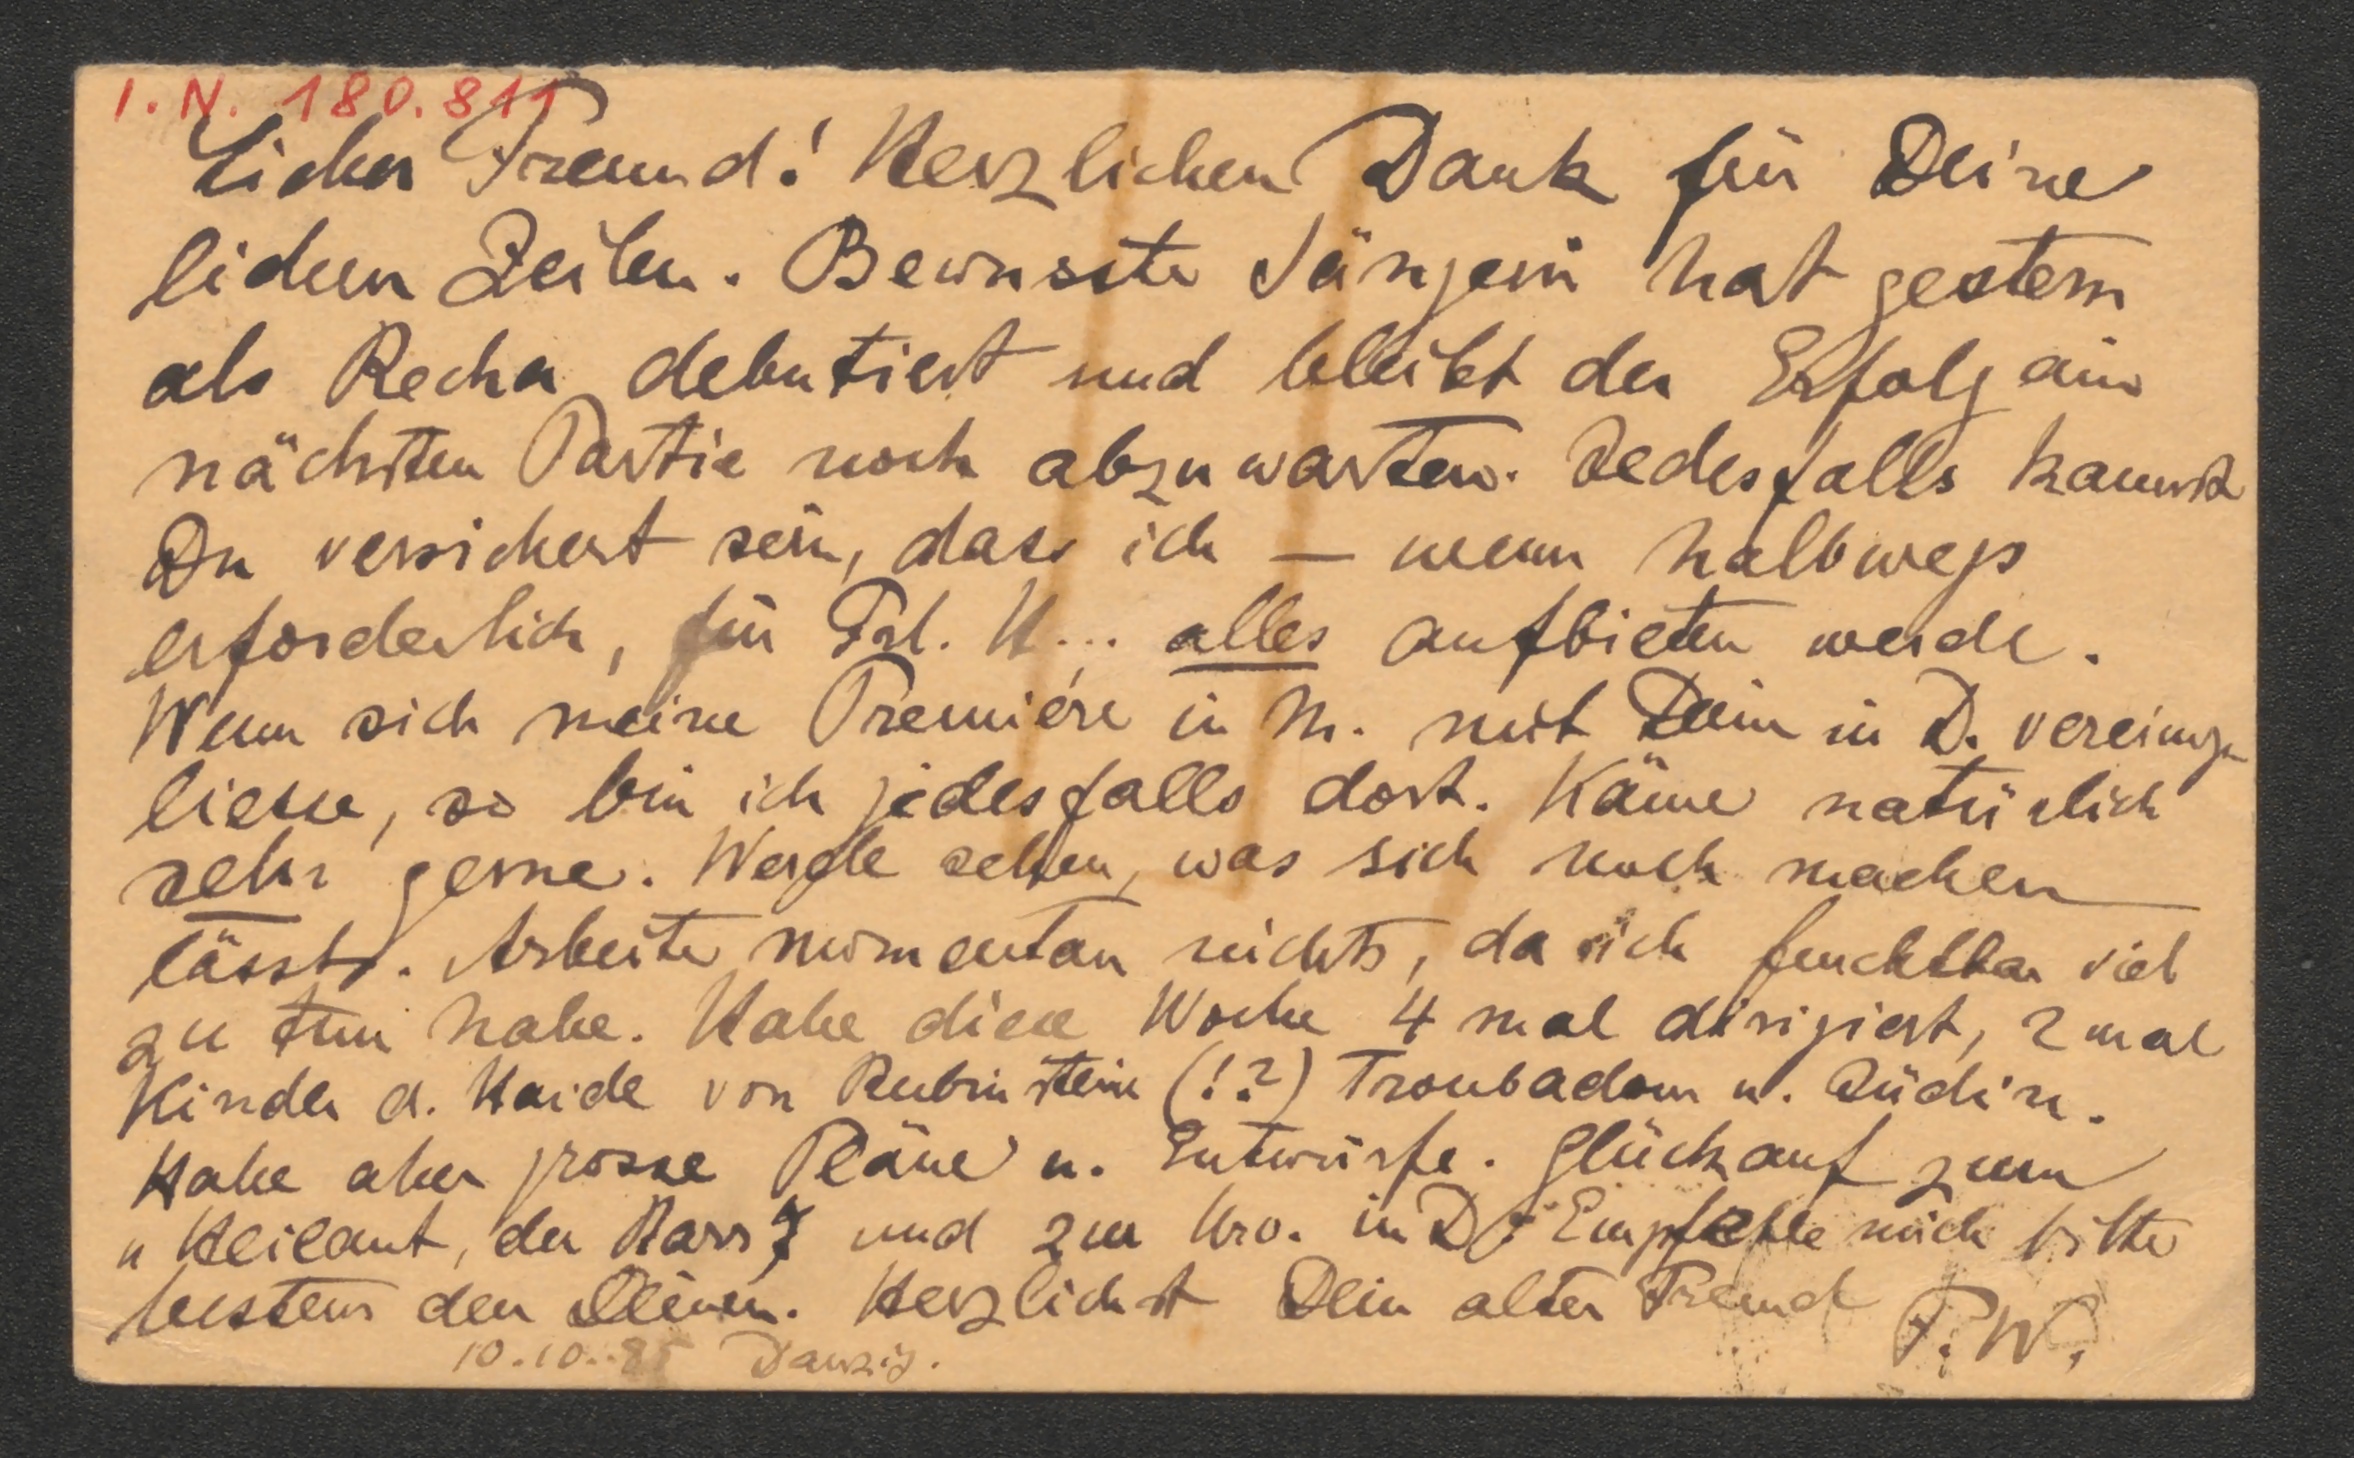 I.N. 180.811
Lieber Freund! Herzlichen Dank für Deine
lieben Zeilen. Bewusste Sängerin hat gestern
als Recha debutiert und bleibt der Erfolg einer
nächsten Partie noch abzuwarten. Jedesfalls kannst
Du versichert sein, dass ich — wenn halbwegs
erforderlich, für Frl. H... alles aufbieten werde.
Wenn sich meine Première in M. mit Deiner in D. vereinigen
liesse, so bin ich jedesfalls dort. Käme natürlich
sehr gerne. Werde sehen, was sich noch machen
lässt. Arbeite momentan nichts, da ich furchtbar viel
zu tun habe. Habe diese Woche 4 mal dirigiert, 2 mal
Kinder d. Haide von Rubinstein (!?) Troubadour u. Jüdin.
Habe aber grosse Pläne u. Entwürfe. Glückauf zum
Heilant, der und zur Uro. in D. Empfehle mich bitte
bestens den Deinen. Herzlichst Dein alter Freund F. W.
10.10.85 Danzig.